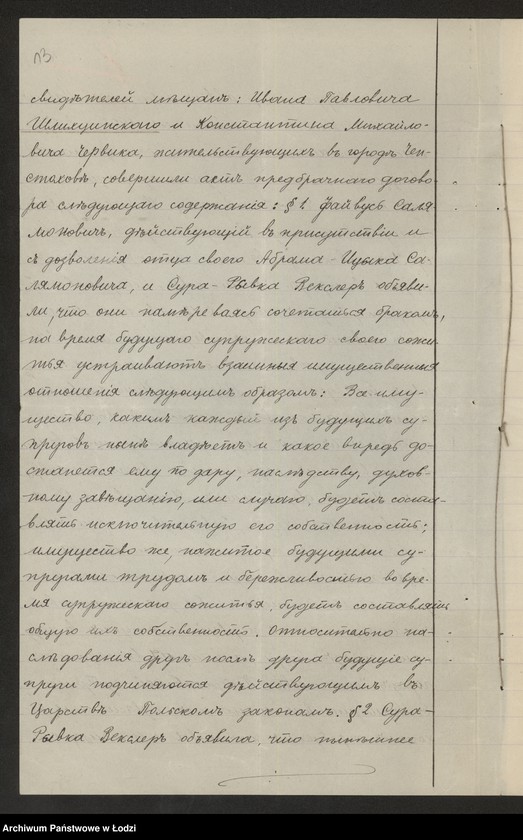 13
свидѣтелей мѣщанъ: Ивана Павловича
Шлихцинскаго и Константина Михайло-
вича Червика, жительствующихъ въ городѣ Чен-
стоховѣ, совершили актъ предбрачнаго догово-
ра слѣдующаго содержанія: § 1 Файвусь Саля-
моновичъ, дѣйствующій въ присутствіи и
съ дозволенія отца своего Абрама-Ицыка Са-
лямоновича, и Сура-Рывка Векслеръ объяви-
ли, что они намѣреваясь сочетаться бракомъ,
на время будущаго супружескаго своего сожи-
тья устраиваютъ взаимныя имущественныя
отношенія слѣдующимъ образомъ: Все иму-
щество, какимъ каждый изъ будущихъ су-
пруговъ нынѣ владѣетъ и какое впредь до-
станется ему по дару, наслѣдству, духов-
ному завѣщанію, или случаю, будетъ соста-
влять исключительную его собственность;
имущество же, нажитое будущими су-
пругами трудомъ и бережливостью во вре-
мя супружескаго сожитья, будетъ составлять
общую ихъ собственность. Относительно на-
слѣдованія другъ послѣ друга будущіе су-
пруги подчиняются дѣйствующимъ въ
Царствѣ Польскомъ законамъ. § 2 Сура-
Рывка Векслеръ объявила, что нынѣшнее
Archiwum Państwowe w Łodzi